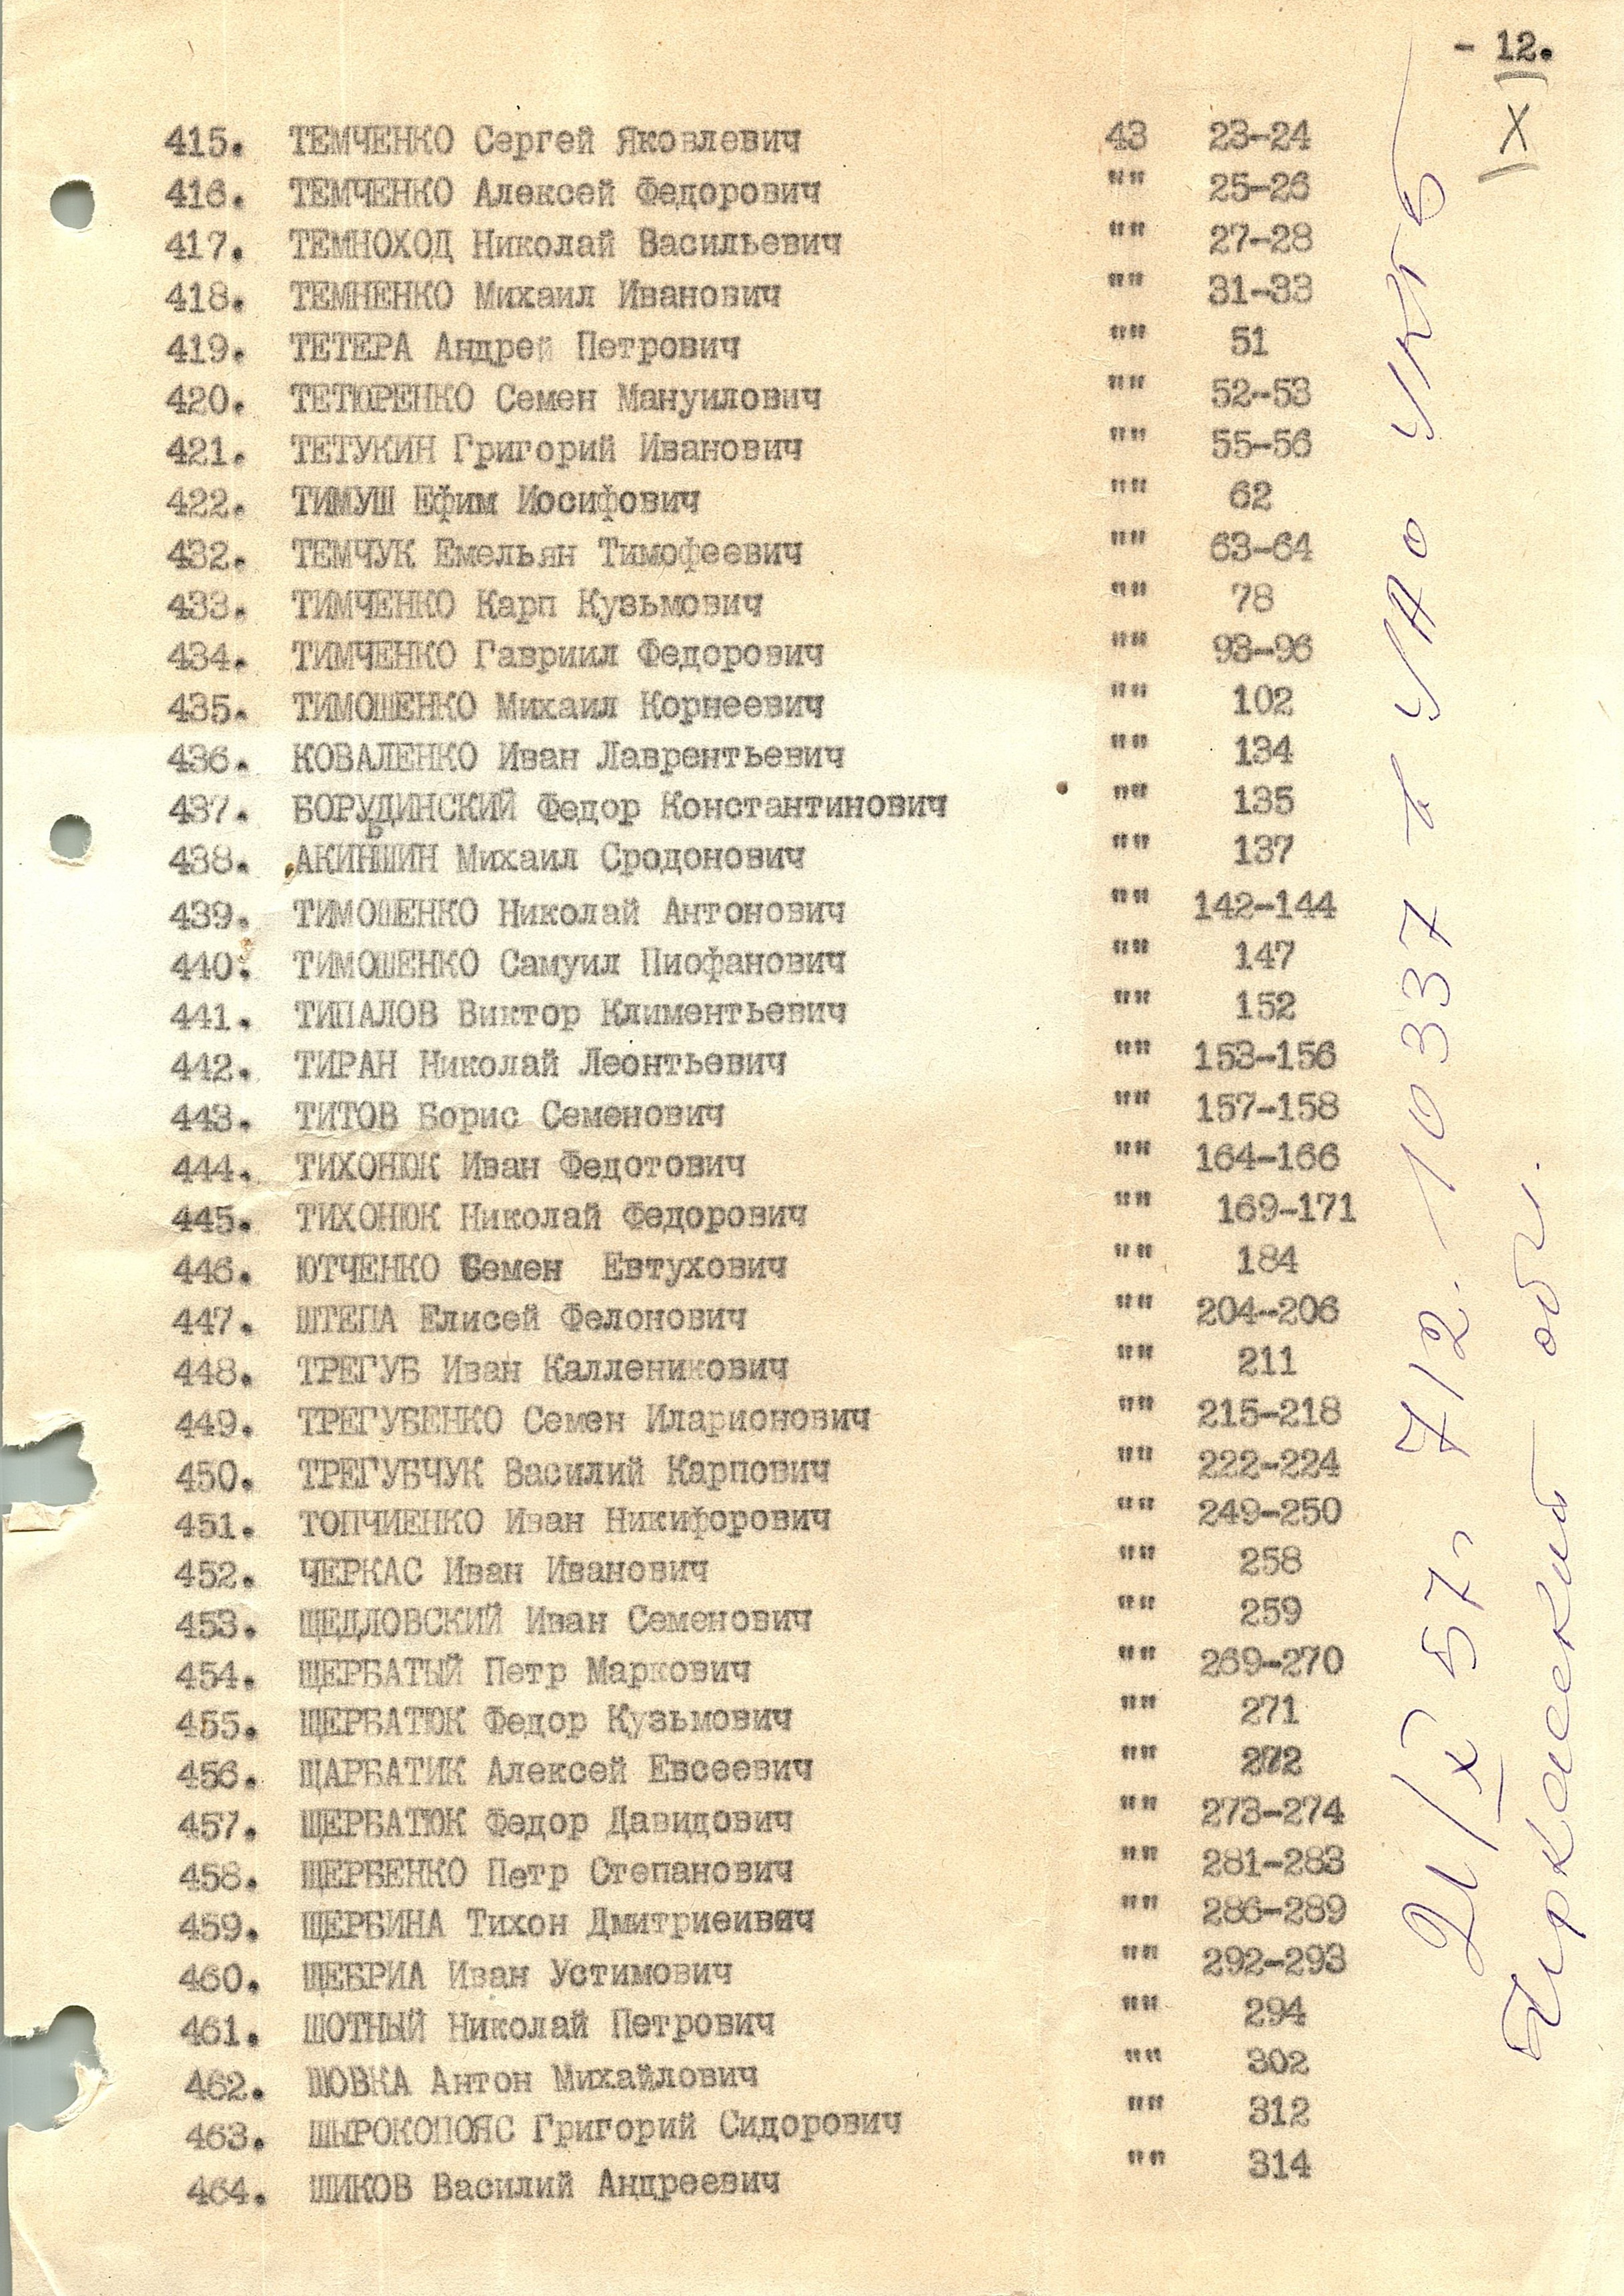 - 12.
415. ТЕМЧЕНКО Сергей Яковлевич 43 23-24
416. ТЕМЧЕНКО Алексей Федорович "" 25-26
417. ТЕМНОХОД Николай Васильевич "" 27-28
418. ТЕМНЕНКО Михаил Иванович "" 31-33
419. ТЕТЕРА Андрей Петрович "" 51
420. ТЕТЮРЕНКО Семен Мануилович "" 52-53
421. ТЕТУКИН Григорий Иванович "" 55-56
422. ТИМУШ Ефим Иосифович "" 62
432. ТЕМЧУК Емельян Тимофеевич "" 63-64
433. ТИМЧЕНКО Карп Кузьмович "" 78
434. ТИМЧЕНКО Гавриил Федорович "" 93-96
435. ТИМОШЕНКО Михаил Корнеевич "" 102
436. КОВАЛЕНКО Иван Лаврентьевич "" 134
437. БОРУДИНСКИЙ Федор Константинович "" 135
438. АКИНШИН Михаил Сродонович "" 137
439. ТИМОШЕНКО Николай Антонович "" 142-144
440. ТИМОШЕНКО Самуил Пиофанович "" 147
441. ТИПАЛОВ Виктор Климентьевич "" 152
442. ТИРАН Николай Леонтьевич "" 153-156
443. ТИТОВ Борис Семенович "" 157-158
444. ТИХОНЮК Иван Федотович "" 164-166
445. ТИХОНЮК Николай Федорович "" 169-171
446. ЮТЧЕНКО Семен Евтухович "" 184
447. ШТЕПА Елисей Фелонович "" 204-206
448. ТРЕГУБ Иван Калленикович "" 211
449. ТРЕГУБЕНКО Семен Иларионович "" 215-218
450. ТРЕГУБЧУК Василий Карпович "" 222-224
451. ТОПЧИЕНКО Иван Никифорович "" 249-250
452. ЧЕРКАС Иван Иванович "" 258
453. ЩЕДЛОВСКИЙ Иван Семенович "" 259
454. ЩЕРБАТЫЙ Петр Маркович "" 269-270
455. ЩЕРБАТЮК Федор Кузьмович "" 271
456. ЩАРБАТИК Алексей Евсеевич "" 272
457. ЩЕРБАТЮК Федор Давидович "" 273-274
458. ЩЕРБЕНКО Петр Степанович "" 281-283
459. ЩЕРБИНА Тихон Дмитриеивич "" 286-289
460. ЩЕБРИА Иван Устимович "" 292-293
461. ШОТНЫЙ Николай Петрович "" 294
462. ШОВКА Антон Михайлович "" 302
463. ШЫРОКОПОЯС Григорий Сидорович "" 312
464. ШИКОВ Василий Андреевич "" 314
21/X 57г 7/2.-10337 в УАО УКГБ
Черкасский обл.